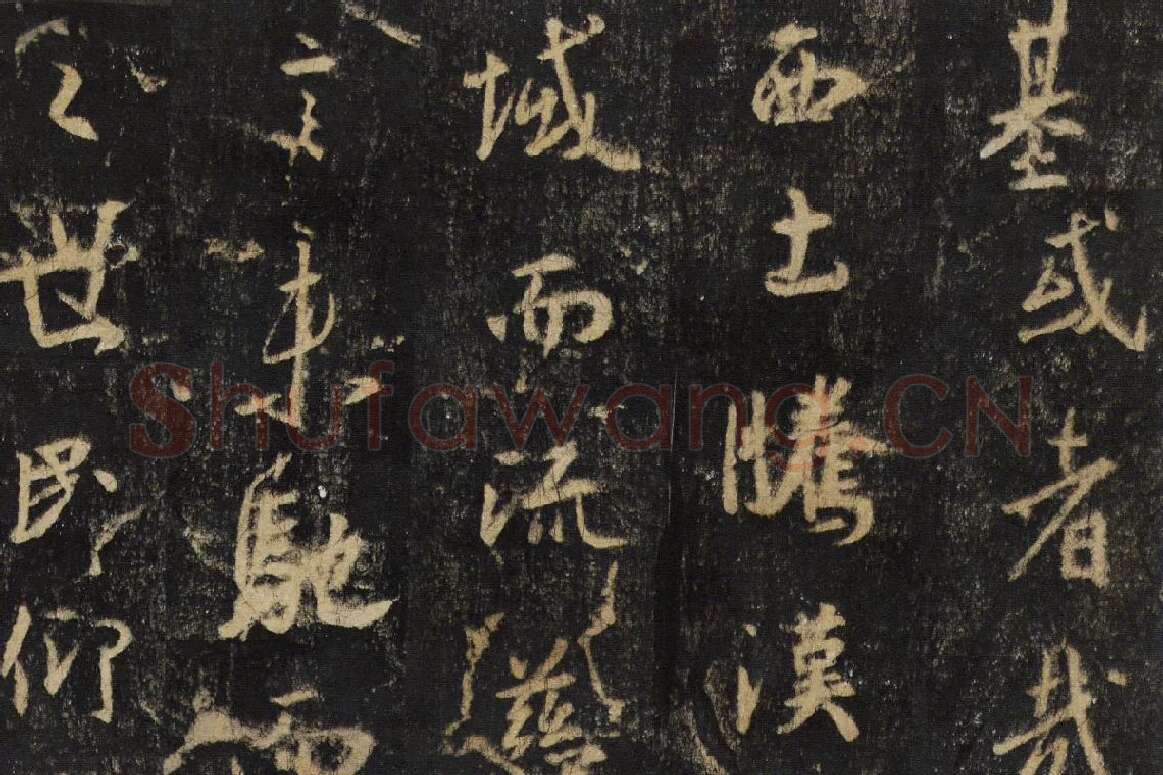 基或者哉
西土騰漢
域而流慈
言未馳而
之世民仰
Shufawang.CN